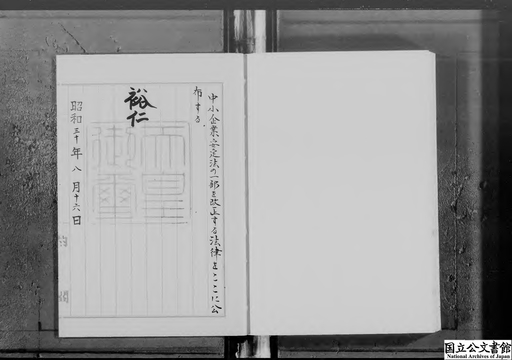 中小企業安定法の一部を改正する法律をここに公
布する
裕仁
天皇
御璽
昭和三十年八月十六日
国立公文書館
National Archives of Japan